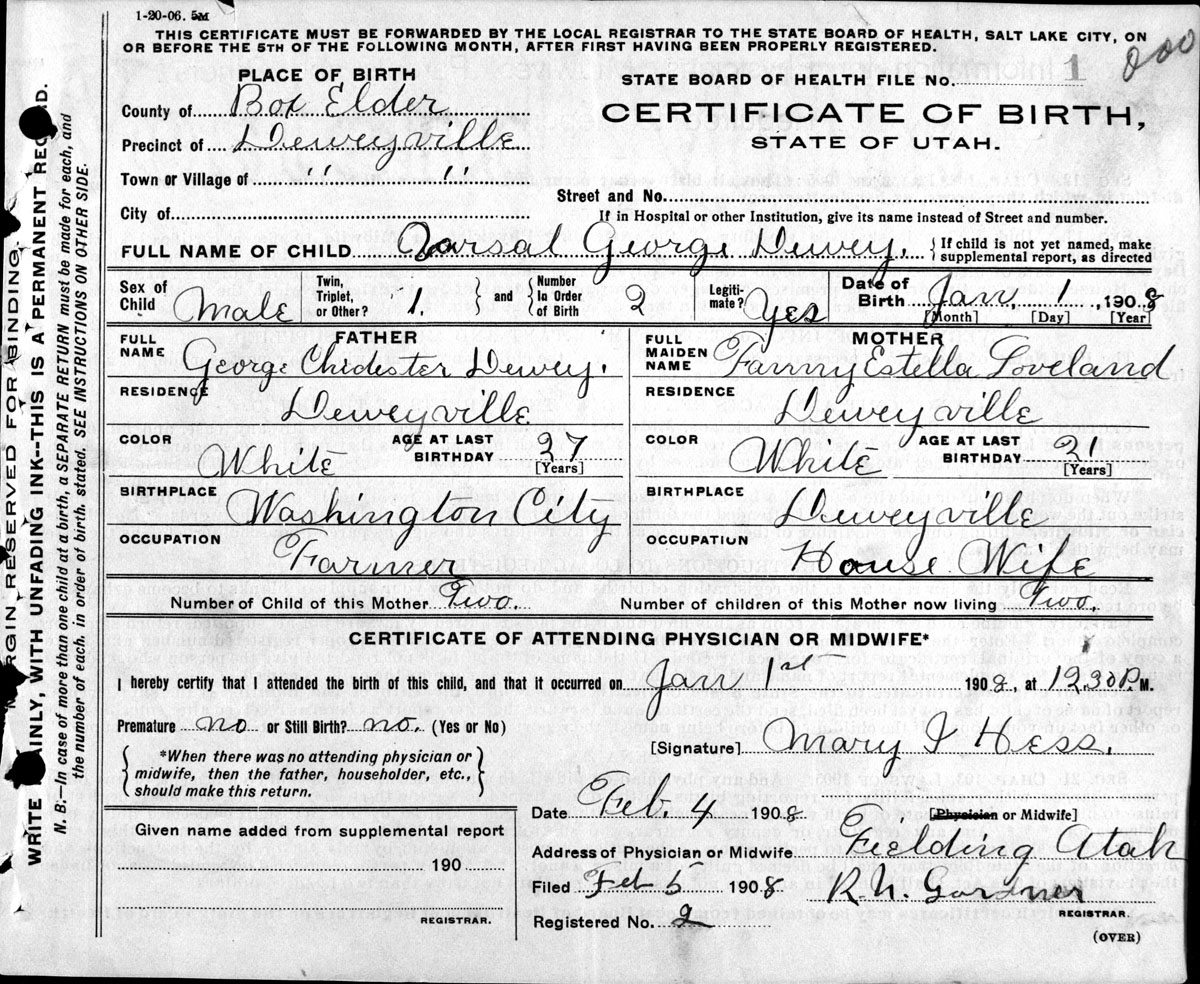 1-20-06. 5M
THIS CERTIFICATE MUST BE FORWARDED BY THE LOCAL REGISTRAR TO THE STATE BOARD OF HEALTH, SALT LAKE CITY, ON
OR BEFORE THE 5TH OF THE FOLLOWING MONTH, AFTER FIRST HAVING BEEN PROPERLY REGISTERED.
200
PLACE OF BIRTH
STATE BOARD OF HEALTH FILE No. 1
County of Box Elder
CERTIFICATE OF BIRTH,
Precinct of Deweyville
STATE OF UTAH.
Town or Village of " "
Street and No.
City of
If in Hospital or other Institution, give its name instead of Street and number.
FULL NAME OF CHILD George Dewey. {If child is not yet named, make
supplemental report, as directed
Sex of Child Male Twin, Triplet, or Other? 1. } and { Number In Order of Birth 2 Legiti-mate? Yes Date of Birth Jan 1, 1908
[Month] [Day] [Year]
FATHER
FULL NAME George Chidester Dewey.
MOTHER
FULL MAIDEN NAME Fanny Estella Loveland
RESIDENCE Deweyville
RESIDENCE Deweyville
COLOR White AGE AT LAST BIRTHDAY 27 [Years]
COLOR White AGE AT LAST BIRTHDAY 21 [Years]
BIRTHPLACE Washington City
BIRTHPLACE Deweyville
OCCUPATION Farmer
OCCUPATION House Wife
Number of Child of this Mother Two.
Number of children of this Mother now living Two.
CERTIFICATE OF ATTENDING PHYSICIAN OR MIDWIFE*
I hereby certify that I attended the birth of this child, and that it occurred on Jan 1st 1908, at 12,30 P. M.
Premature no or Still Birth? no. (Yes or No)
[Signature] Mary I Hess.
{ *When there was no attending physician or
midwife, then the father, householder, etc.,
should make this return. }
Date Feb. 4 1908 [Physician or Midwife]
Given name added from supplemental report
Address of Physician or Midwife Fielding Utah
190
Filed Feb 5 1908 R. N. Gardner
REGISTRAR.
REGISTRAR.
Registered No. 2
(OVER)
RGIN RESERVED FOR BINDING
WRITE AINLY, WITH UNFADING INK--THIS IS A PERMANENT RE D.
N. B.--In case of more than one child at a birth, a SEPARATE RETURN must be made for each, and
the number of each, in order of birth, stated. SEE INSTRUCTIONS ON OTHER SIDE.